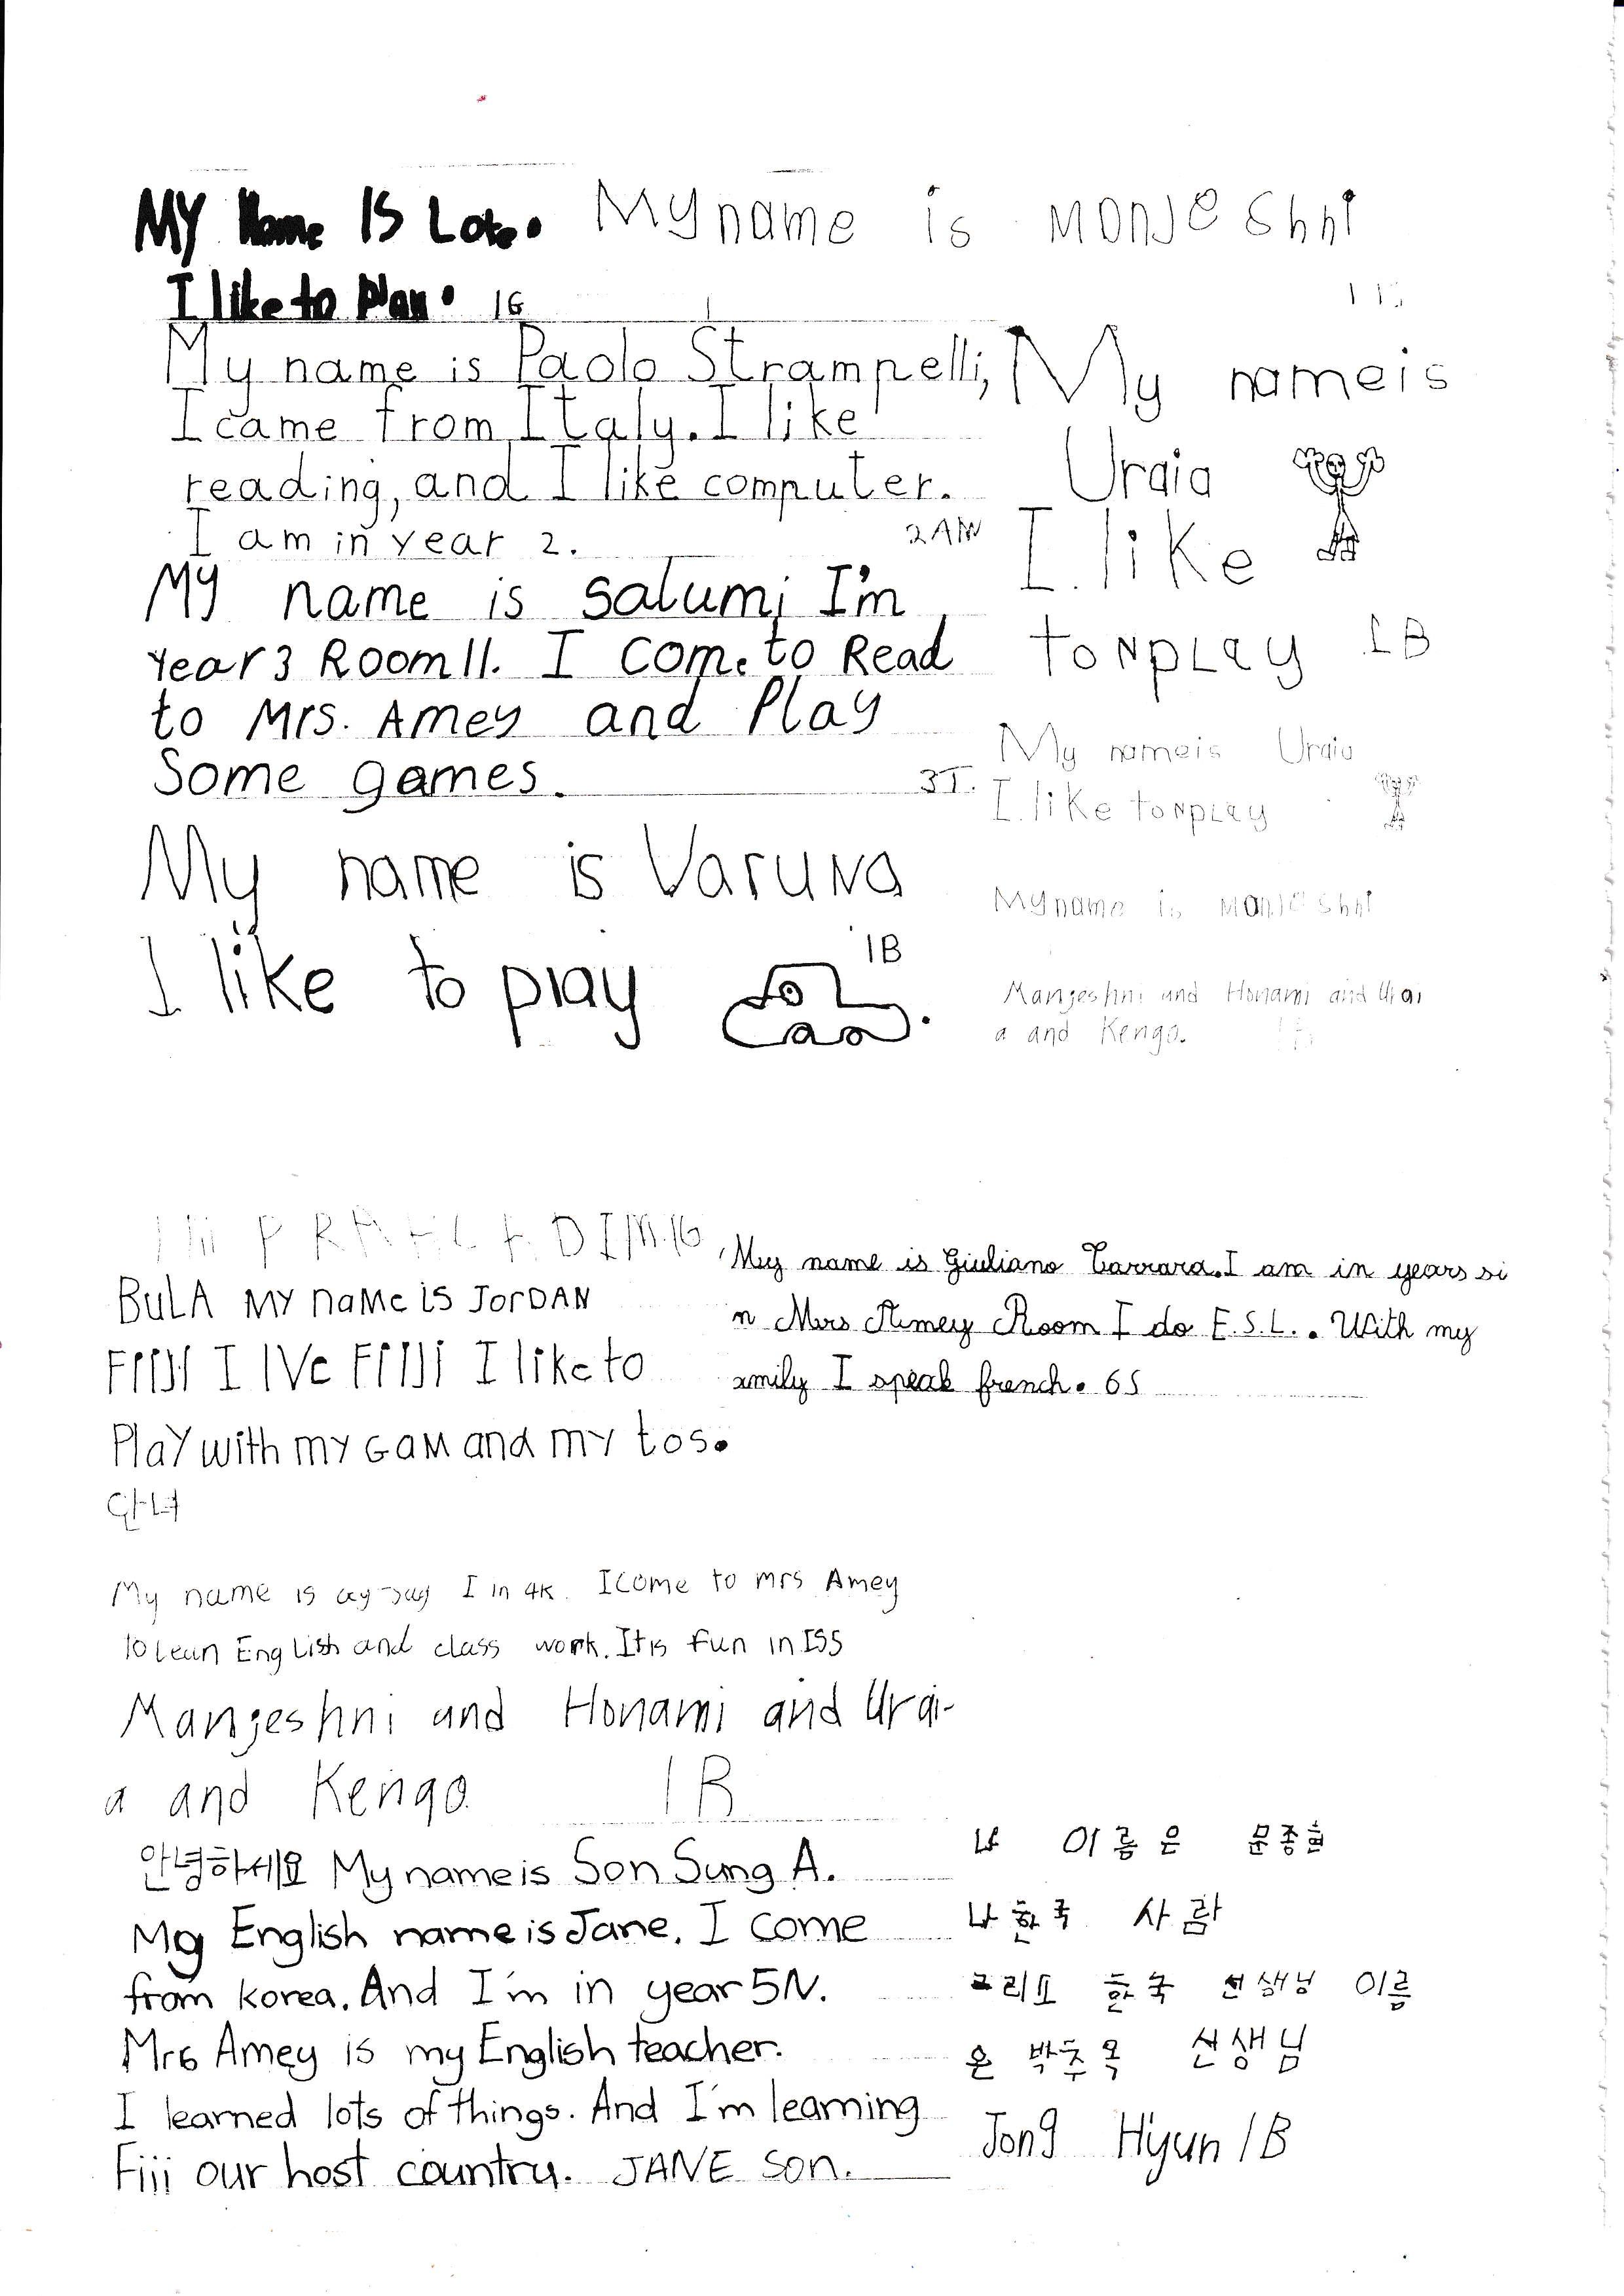 MY Name IS Loto.
I like to Play. 1G
My name is MONJeShni
My name is Paolo Strampelli,
I came from Italy. I like
reading, and I like computer.
I am in year 2. 2AW
My nameis
Uraia
I. like
toNpLay 1B
My name is Satumi I'm
Year 3 Room 11. I Com. to Read
to Mrs. Amey and Play
Some games. 3I.
My nameis Uraia
I. like toNpLay
My name is VaruNa
I like to play 1B
Car.
My name is MONJeShni
Manjeshni and Honami and Urai
a and Kengo.
DIM.1G
BuLA MY NaMe iS JorDAN
FIIJI I lVe FIIJI I like to
PlaY with mY GaM and mY tos.
안녀
My name is Giuliano Carrara. I am in years si
n Mrs Amey Room I do E.S.L.. With my
amily I speak french. 6S
My name is I in 4K. I come to mrs Amey
to lean EngLish and class work. It is fun in ISS
Manjeshni and Honami and Urai-
a and Kengo 1B
안녕하세요 My name is Son Sung A.
My English name is Jane. I come
from korea. And I'm in year 5N.
Mrs Amey is my English teacher.
I learned lots of things. And I'm learning
Fiji our host country. JANE Son.
나 이름은 문종현
나 한국 사람
그리고 한국 선생님 이름
은 박추옥 선생님
Jong Hyun 1B